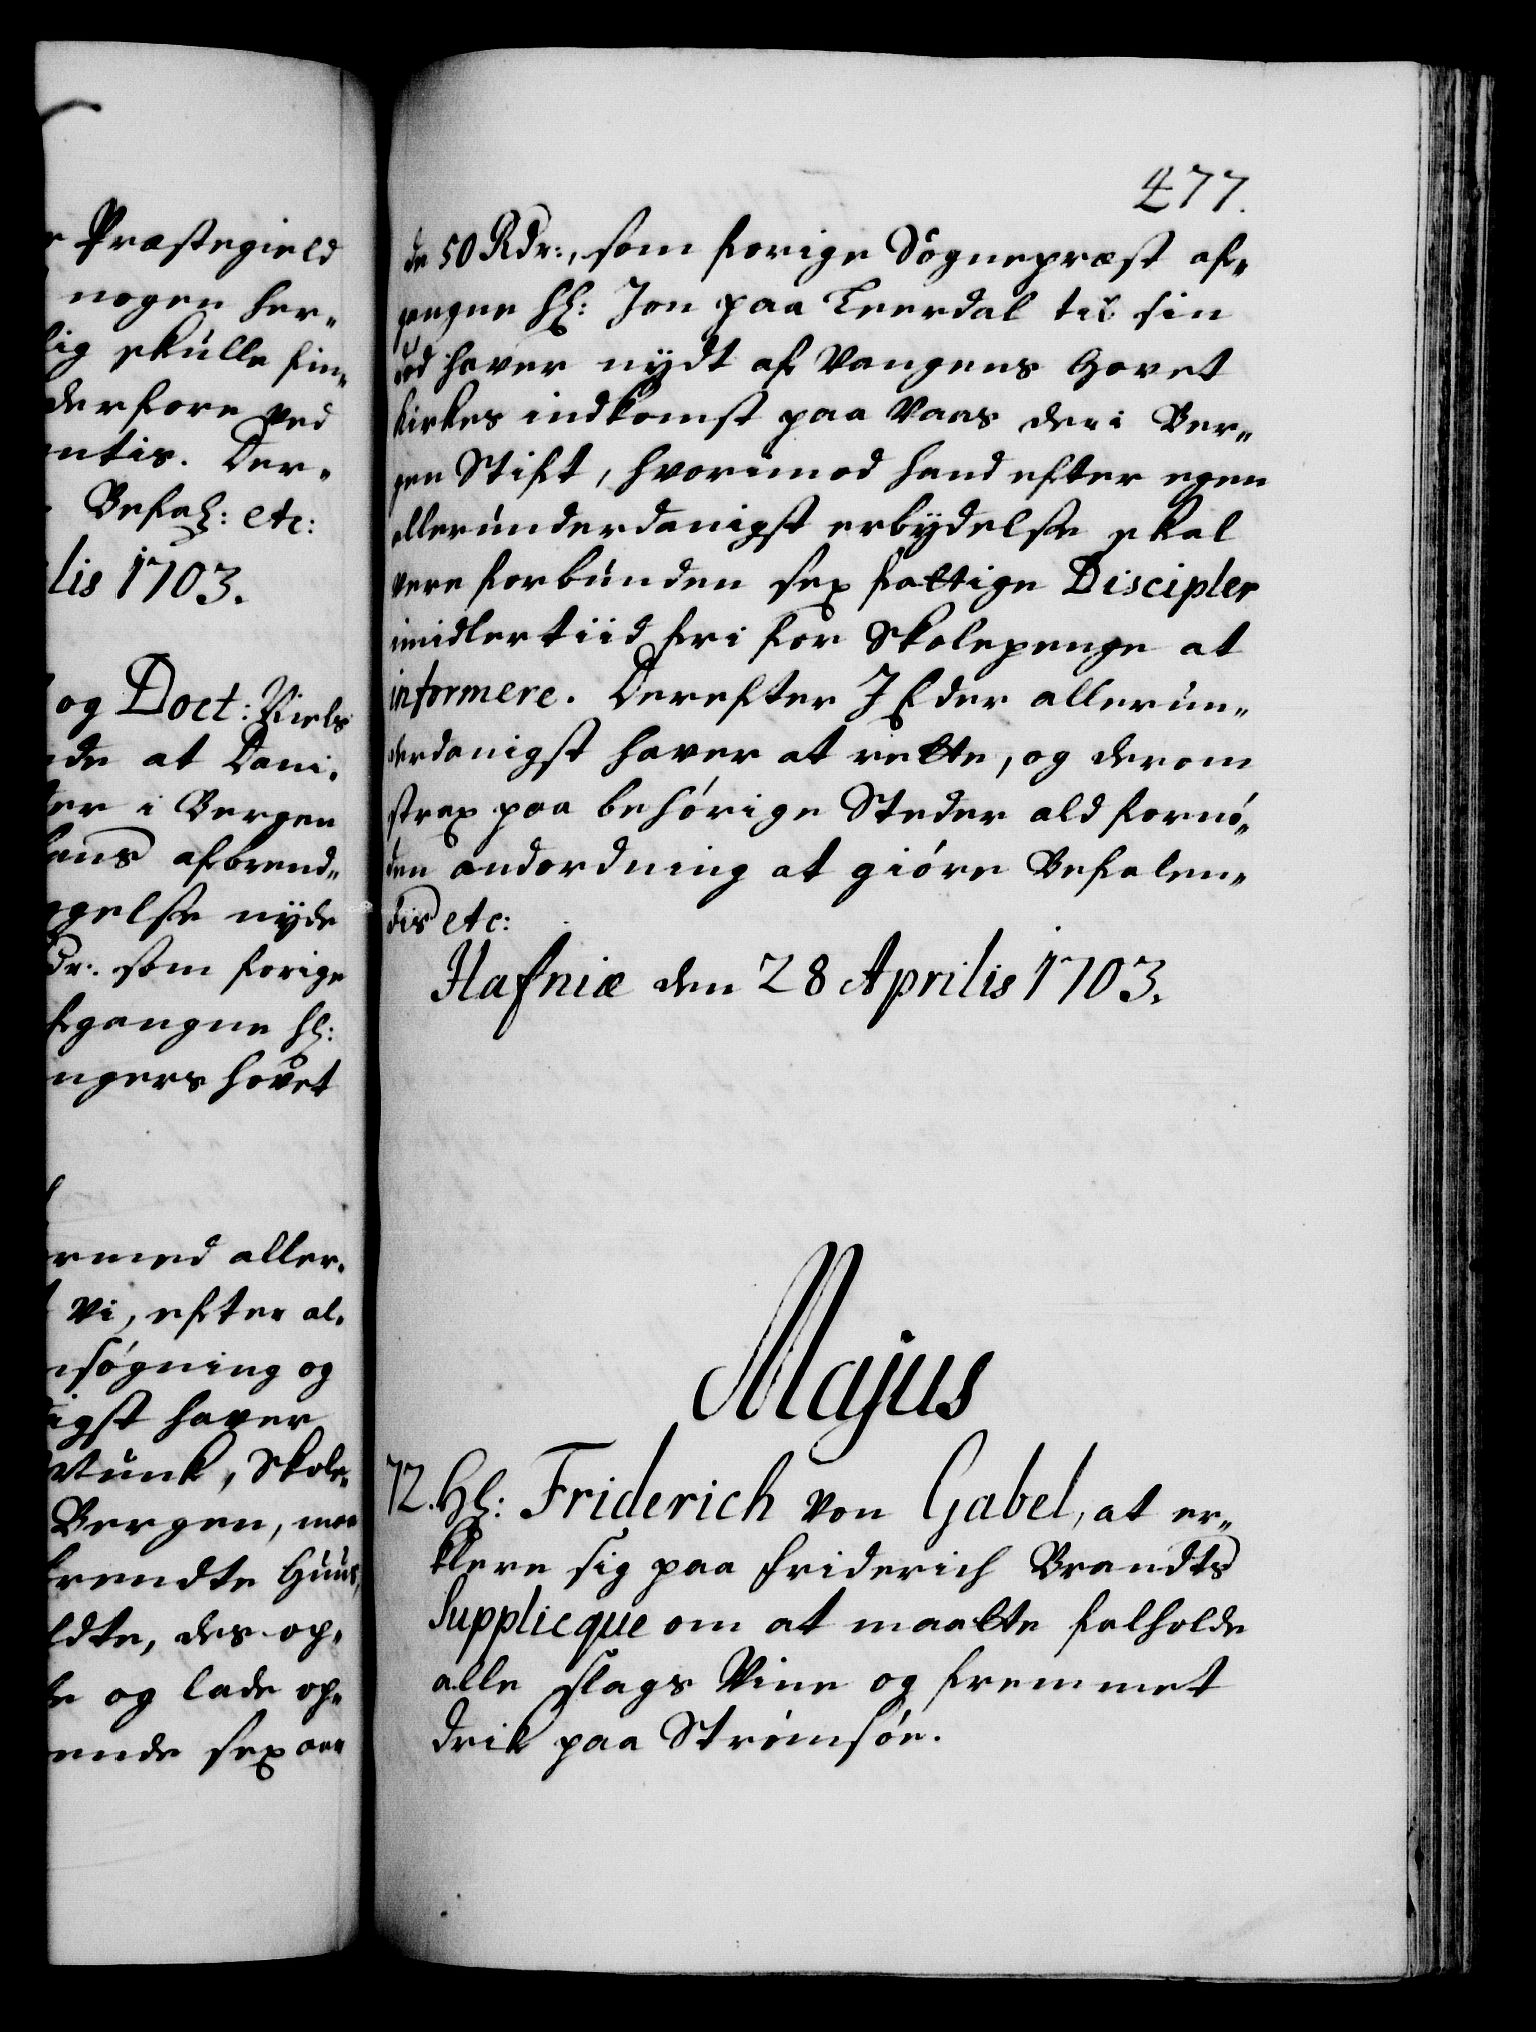 e Præstegield
nogen her¬
lig skulle fin¬
derfore ved
entis. Der¬
Befah: etc:
lis 1703.
og Doct: Niels
de at Dani¬
ler i Bergen
hans afbrend¬
ggelse nyde
dr: som forige
fgangne Hr:
ngers hovet
rmed aller¬
vi, efter al¬
nsøgning og
igst haver
Munk, Skole¬
Bergen, maa
brendte Huus,
ldte, des op¬
de og lade op¬
ende sex aar
477.
de 50 Rdr:, som forige Sognepræst af¬
gangne Hr: Jon paa Leerdal til sin
død haver nydt af Vangens Hovet
kirkes indkomst paa Vaas der i Ber¬
gen Stift, hvorimod hand efter egen
allerunderdanigst erbydelse skal
være forbunden sex fattige Discipler
imidlertiid fri for Skolepenge at
informere. Derefter I Eder allerun¬
derdanigst haver at rette, og derom
strax paa behørige Steder ald fornø¬
den andordning at giøre Befalen¬
dis etc:
Hafniæ den 28 Aprilis 1703.
Majus
72. Hr: Friderich von Gabel, at er¬
klere sig paa Friderich Brandts
Supplicque om at maatte falholde
alle slags Vine og fremmet
drik paa Strømsøe.